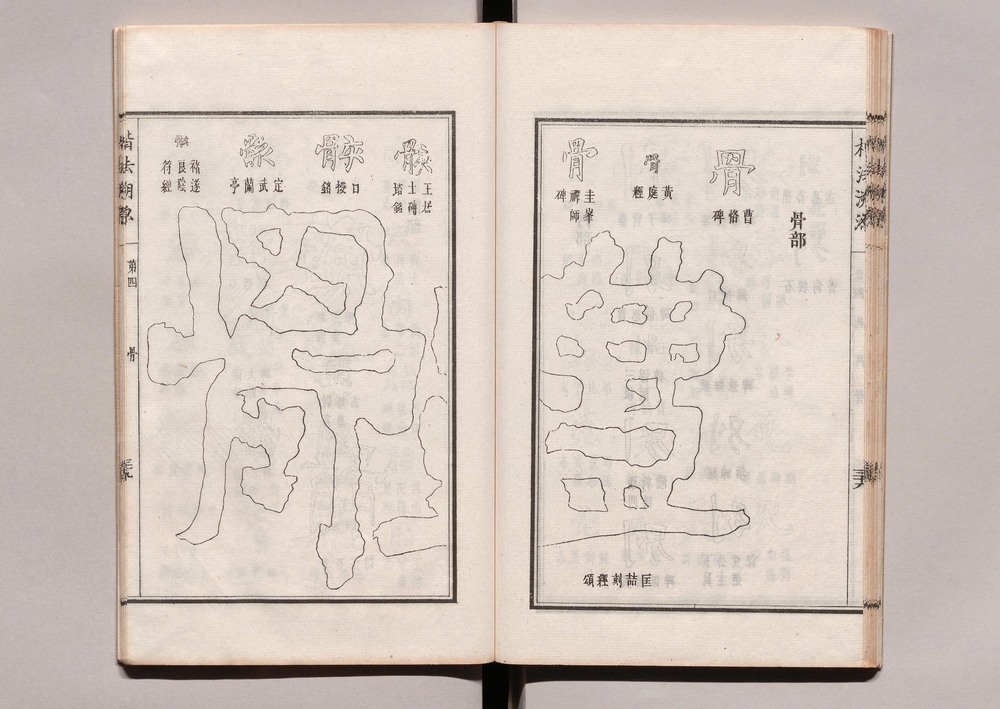 骨部
骨
曹恪碑
骨
黃庭經
骨
圭峯
禪師
碑
體
匡喆刻經頌
骸
王居
士磚
塔銘
骸
口授銘
骸
定武蘭亭
骸
褚遂
良陰
符經
楷法溯源
第四
骨